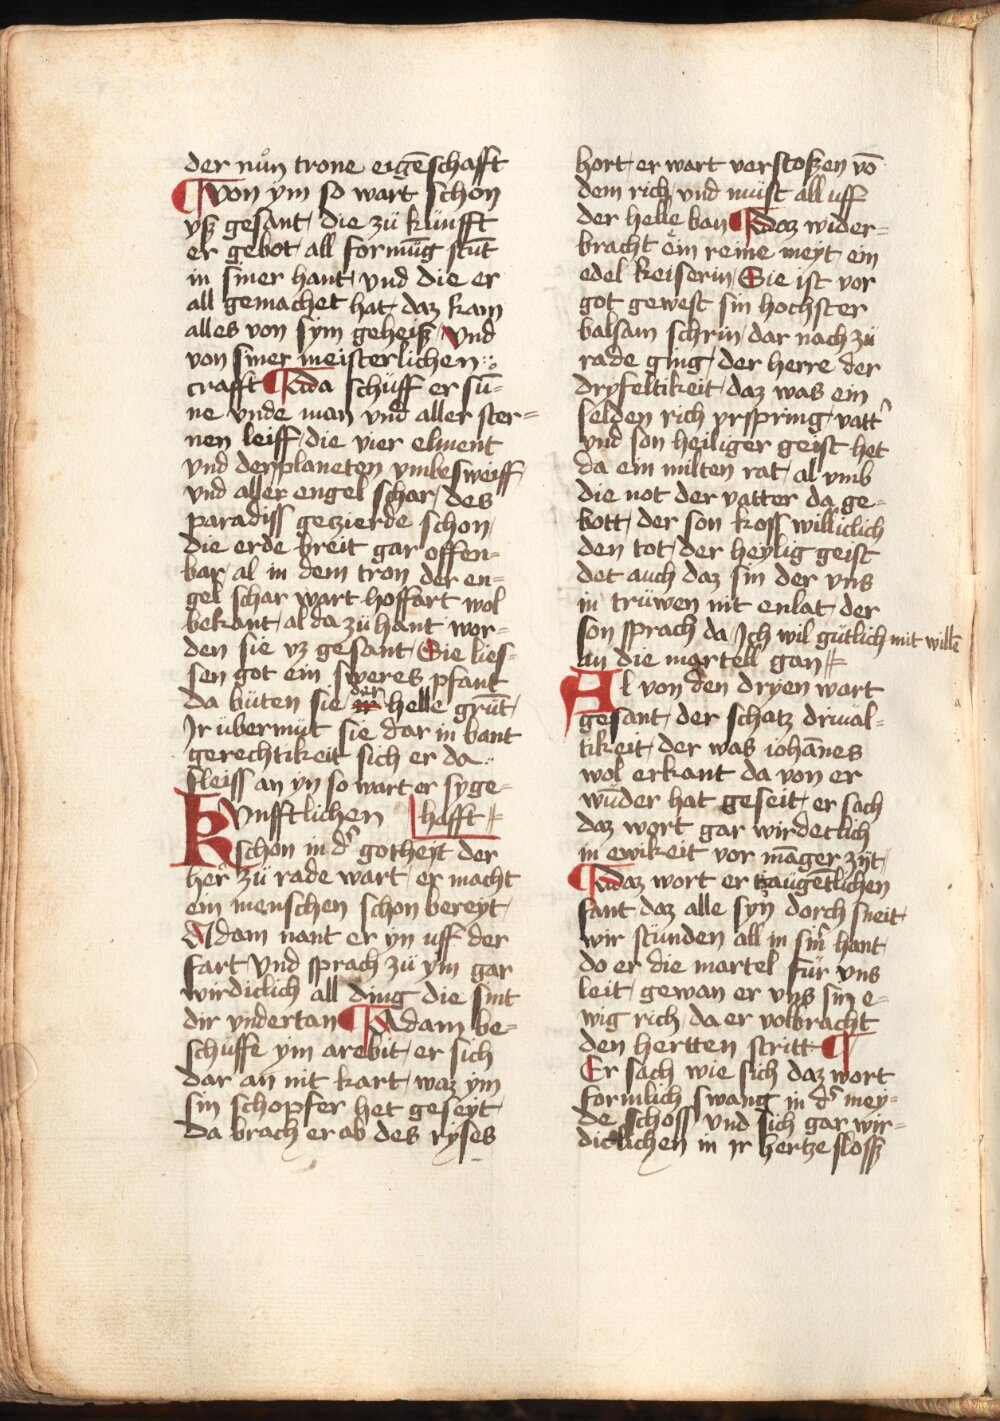 der nuͦn trone eigēschafft
¶ von ym so wart schon
vß gesant / die zü künfft
er gebot / all formūg stūt
in siner hant / vnd die er
all gemachet hat / daz kam
alles von sym geheiß / vnd
von siner meisterlichen :
crafft ¶ da schüff er sū=
ne vnde man vnd aller ster=
nen leiff / die vier elment
vnd der planeten vmbesweiff /
vnd aller engel schar / des
paradiss gezierde schon /
die erde breit gar offen=
bar / al in dem tron der en=
gel schar wart hoffart wol
bekant / al da zü hant wor=
den sie vz gesant / Sie lies=
sen got ein sweres pfant
da büten sie ir der helle grūt /
Ir übermüt sie dar in bant
gerechtikeit sich er da :
fleiss an yn so wart er syge=
Kvnfftlichen hafft
schon in dˢ gotheyt der
her zü rade wart / er macht
ein menschen schon bereyt /
Adam nant er yn uff der
fart / vnd sprach zü ym gar
wirdiclich all ding die sint
dir vndertan ¶ Adam be=
schüffe ym arebit / er sich
dar an nit kart / waz ym
sin schopfer het geseyt /
da brach er ab des ryses
hort / er wart verstoßen vō
dem rich / vnd müst all uff
der helle ban ¶ daz wider=
bracht ein reine meyt / ein
edel keiserin / Sie ist vor
got gewest sin hochster
balsam schrin / dar nach zü
rade ging / der herre der
dryfeltikeit / daz was ein
selden rich vrspring / vattˀ
vnd son heiliger geist het
da ein milten rat / al vmb
die not der vatter da ge=
bott / der son koss williclich
den tot / der heylig geist
det auch daz sin der vns
in trüwen nit enlat / der
son sprach da / Ich wil gütlich mit willē
an die martell gan
Al von den dryen wart
gesant / der schatz drivāl=
tikeit / der was iohānes
wol erkant da von er
wūder hat geseit / er sach
daz wort gar wirdeclich
in ewikeit vor māger zyt /
¶ daz wort er taugētlichen
fant daz alle syn dorch sneit /
wir stūnden all in sinˀ hant /
do er die martel für vns
leit / gewan er vns sin e=
wig rich / da er volbracht
den hertten scritt ¶
Er sach wie sich daz wort
formlich swang in dˢ mey=
de schoss / vnd sich gar wir=
diclichen in ir hertze sloß